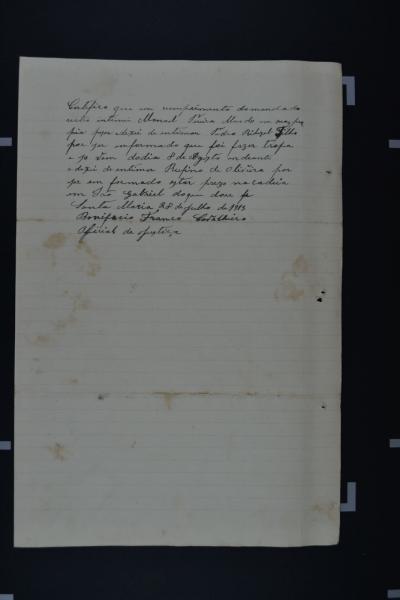 Certifico que em cumprimento do mandado
intimei Manoel
pia deixei de intimar Pedro Filho
por ser informado que foi fazer tropa
e so vem do dia 8 de Agosto in deanti
e deixei de intimar Rufino de Oliveira por
ser em formado estar prezo na cadeia
em São Gabriel do que dou fe
Santa Maria 28 de julho de 1913
Bonifacio Franco
Oficial de justiça